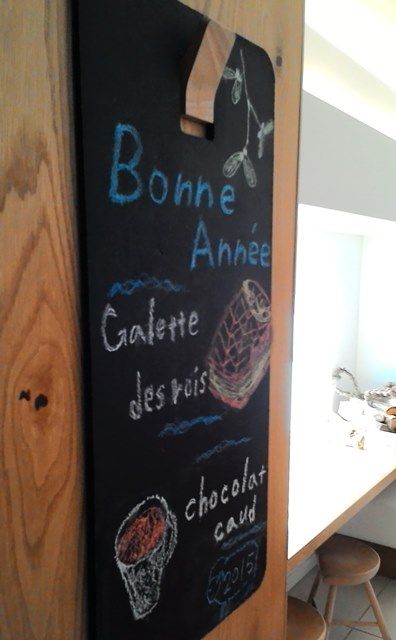 Bonne
Année
Galette
des rois
chocolat
caud
2015